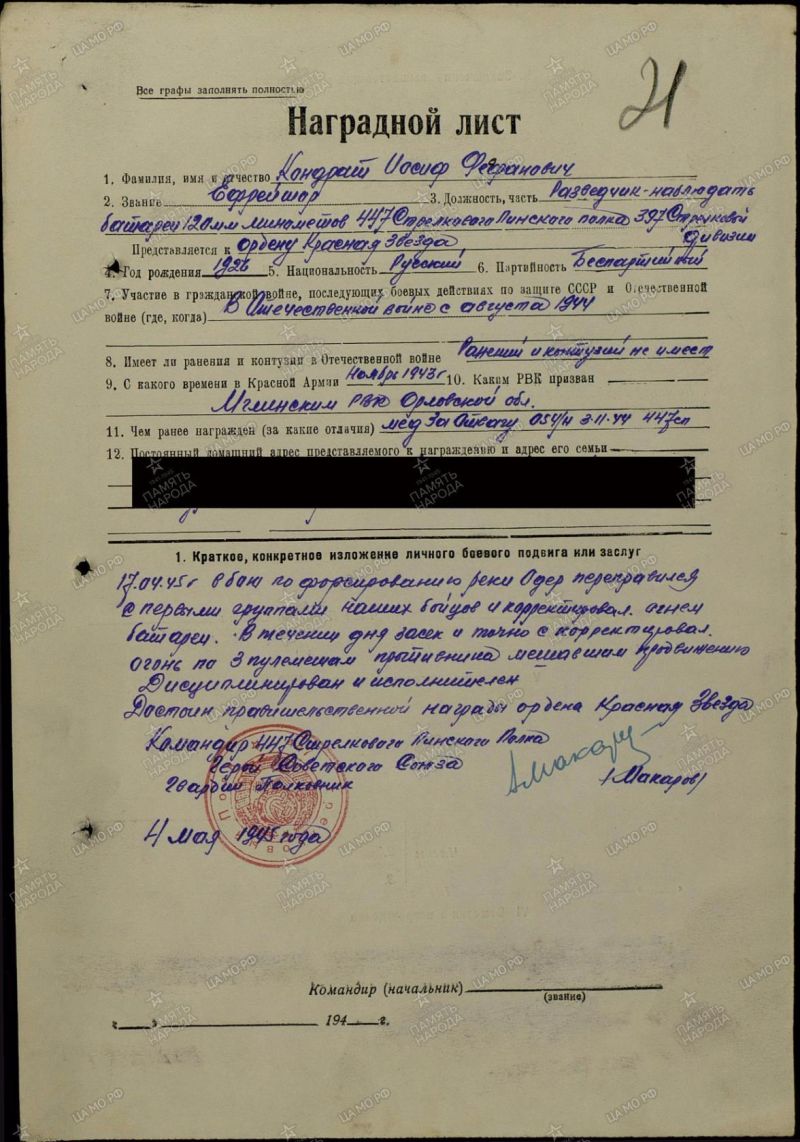 21
Все графы заполнять полностью
Наградной лист
1. Фамилия, имя и отчество Кондрат Иосиф
2. Звание Ефрейтор 3. Должность, часть Разведчик-наблюдать
батареи 120мм минометов 447 Стрелкового Пинского полка 397 Стрелковой
дивизии
Представляется к ордену Красная Звезда
4. Год рождения 1926 5. Национальность Русский 6. Партийность Беспартийный
7. Участие в гражданской войне, последующих боевых действиях по защите СССР и Отечественной
войне (где, когда) В Отечественной войне с августа 1944
8. Имеет ли ранения и контузии в Отечественной войне Ранений и контузий не имеет
9. С какого времени в Красной Армии Ноябрь 1943г 10. Каким РВК призван
Мглинским РВК Орловской обл.
11. Чем ранее награжден (за какие отличия) мед За Отвагу 054/н 3-11-44 447сп
12. Постоянный домашний адрес представляемого к награждению и адрес его семьи
1. Краткое, конкретное изложение личного боевого подвига или заслуг
17.04.45г в бою по форсированию реки Одер переправился
с первыми группами наших бойцов и корректировал огнем
батареи. В течении дня засек и точно скорректировал
огонь по 3 пулеметам противника мешавшим продвижению
Дисциплинирован и исполнителен
Достоин правительственной награды ордена Красная Звезда
Командир 447 Стрелкового Пинского Полка
Герой Советского Союза
Гвардии Полковник Макаров /Макаров/
4 мая 1945 года
Командир (начальник)
(звание)
"  " 194  г.
ПАМЯТЬ НАРОДА
ЦАМО.РФ